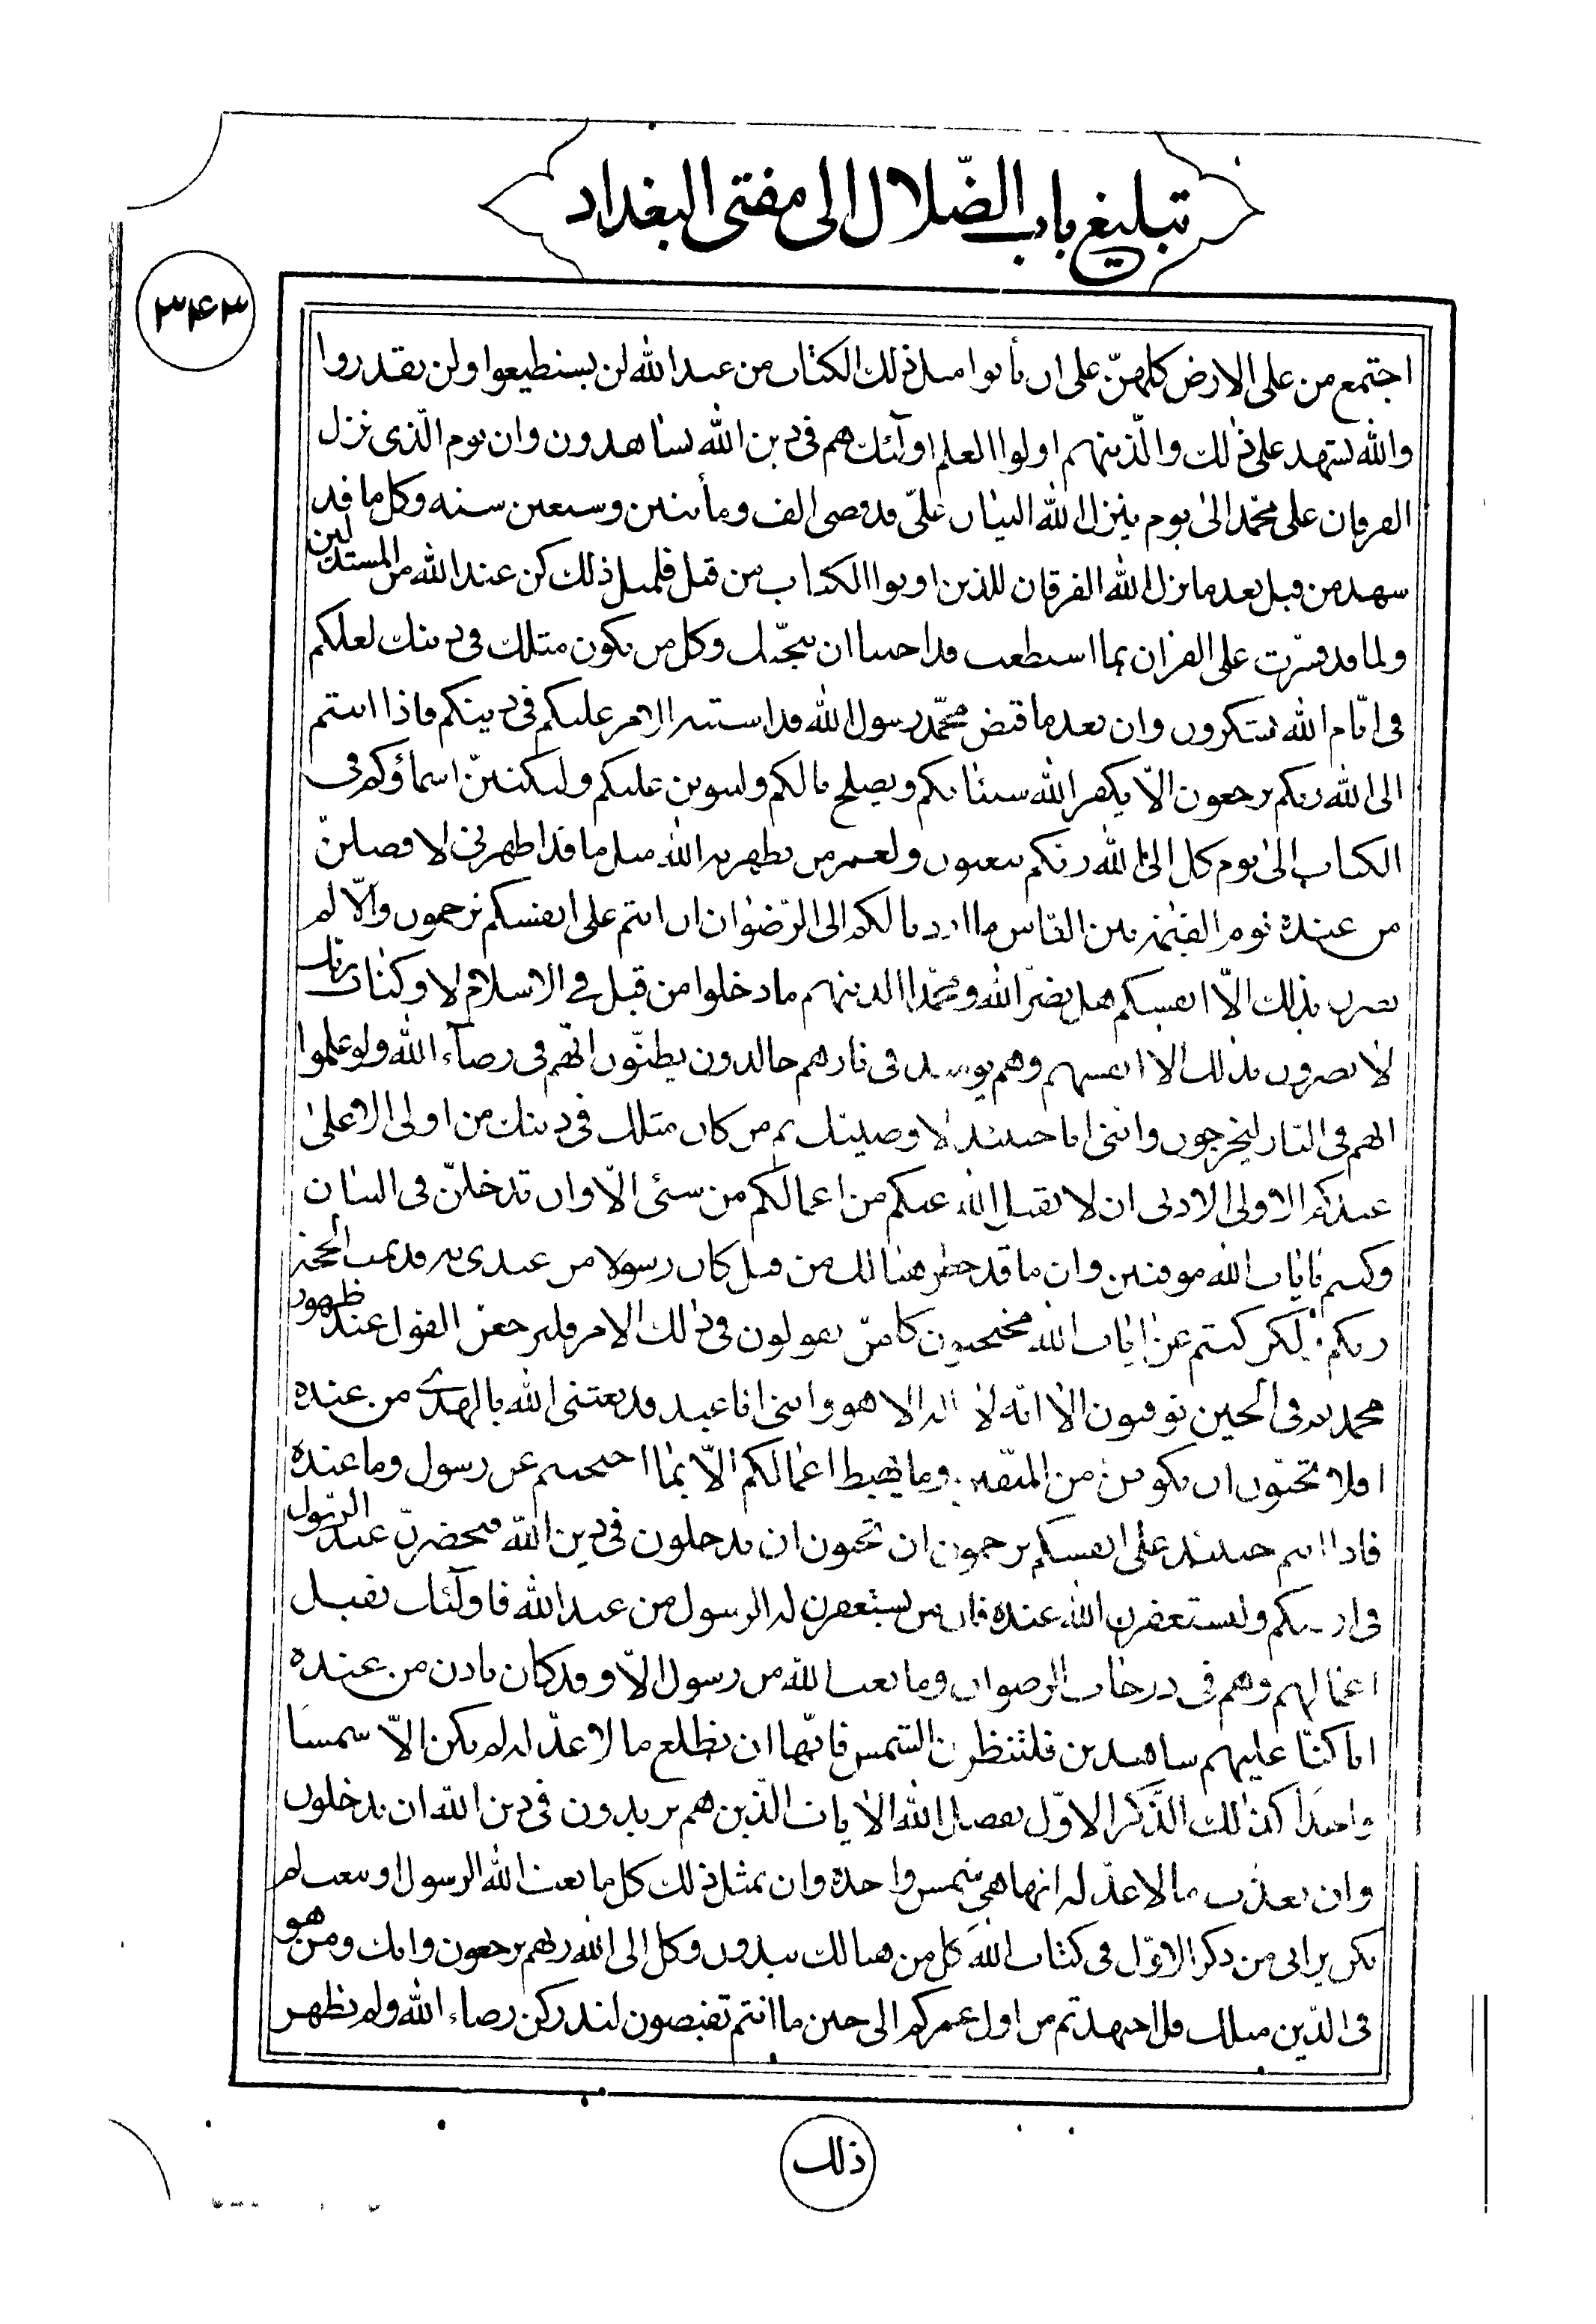 تبليغ باب الضّلال الى مفتى البغداد
٣٤٣
اجتمع من على الارض كلهنّ على ان يأتوا مثل ذلك الكتاب من عند الله لن يستطيعوا ولن يقدروا
والله يشهد على ذلك والّذينهم اولوا العلم اولئك هم فى دين الله يشاهدون وان يوم الّذى نزل
الفرقان على محمّد الى يوم ينزل الله البيان علىّ قد قضى الف ومأتين وسبعين سنه وكل ما قد
شهد من قبل بعد ما نزل الله الفرقان للذين اوتوا الكتاب من قبل فلمثل ذلك كن عند الله من المستدلين
ولما قد فسّرت على القران بما استطعت قد احببنا ان نجّينك وكل من يكون مثلك فى دينك لعلكم
فى ايّام الله تشكرون وان بعد ما قبض محمّد رسول الله قد استتر الامر عليكم فى دينكم فاذا انتم
الى الله ربكم ترجعون الّا يكفر الله سيئاتكم ويصلح بالكم وليتوبن عليكم وليكتبنّ اسماؤكم فى
الكتاب الى يوم كل الى الله ربكم تبعثون ولعمر من يظهره الله مثل ما قد اظهرنى لافصلنّ
من عنده يوم القيمة بين النّاس ما اريد بالكم الى الرّضوان ان انتم على انفسكم ترحمون والّا لم
يضر بذلك الّا انفسكم هل يضرّ الله ومحمّدا الذينهم ما دخلوا من قبل فى الاسلام لا وكتاب ربّك
لا يضرون بذلك الا انفسهم وهم يومئذ فى نارهم خالدون يظنّون انّهم فى رضاء الله ولو علموا
انهم فى النّار ليخرجون واننى انا حينئذ لاوصينك ثم من كان مثلك فى دينك من اولى الاعلى
عندكم الاولى الادنى ان لا يقبل الله عنكم من اعمالكم من شئ الّا وان تدخلنّ فى البيان
وكنتم بايات الله موقنين وان ما قد حضر هنالك من قبل كان رسولا من عندى به قد تمت الحجة
ربكم لكن كنتم عن ايات الله محتجبون كامّن يقولون فى ذلك الامر فليرجعن القول عند ظهور
محمد به فى الحين توقنون الا انّه لا اله الا هو واننى انا عبد قد بعثنى الله بالهدى من عنده
افلا تحبّون ان تكونن من المتقين وما يحبط اعمالكم الّا بما احتجبتم عن رسول وما عنده
فاذا انتم حينئذ على انفسكم ترحمون ان تحبون ان تدخلون فى دين الله فتحضرنّ عند الرّسول
فى ارضكم وليستغفرن الله عنده فان من يستغفرن له الرسول من عند الله فاولئك تقبل
اعمالهم وهم فى درجات الرضوان وما بعث الله من رسول الّا وقد كان باذن من عنده
انا كنّا عليهم شاهدين فلتنظرن الشمس فانّها ان تطلع ما لا عدّ له لم يكن الّا شمسا
واحدا كذلك الذّكر الاوّل يفصل الله الايات الّذين هم يريدون فى دين الله ان يدخلون
وان تغرب ما لا عدّ له انها هى شمس واحدة وان بمثل ذلك كل ما بعث الله الرسول او يبعث لم
يكن يرانى من ذكر الاوّل فى كتاب الله كل من هنالك يبدون وكل الى الله ربهم يرجعون وانك ومن هو
فى الدّين مثلك قل اجتهدتم من اول عمركم الى حين ما انتم تقبضون لتدركن رضاء الله ولم يظهر
ذلك